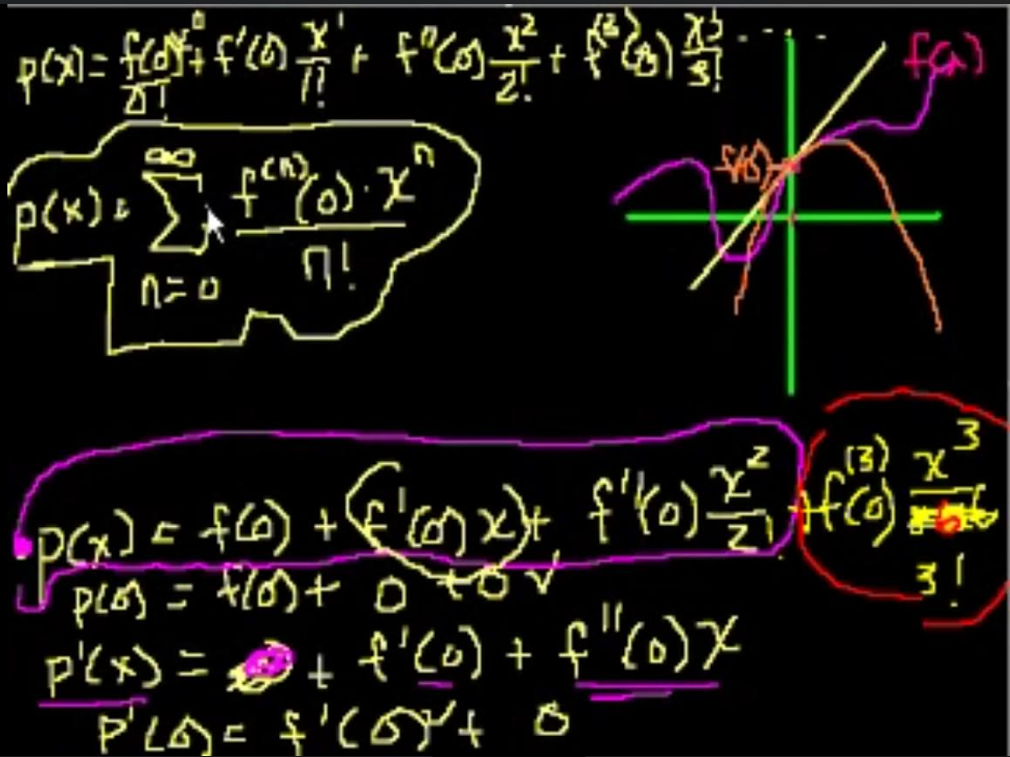 p(x) = f(0)x⁰/0! + f'(0) x¹/1! + f''(0) x²/2! + f⁽³⁾(0) x³/3! ....
f(x)
f(0)
p(x) = ∞ Σ n=0 f⁽ⁿ⁾(0)·xⁿ / n!
p(x) = f(0) + f'(0)x + f''(0) x²/2! + f⁽³⁾(0) x³/3!
p(0) = f(0) + 0 + 0 ✓
p'(x) = + f'(0) + f''(0)x
p'(0) = f'(0) ✓ + 0